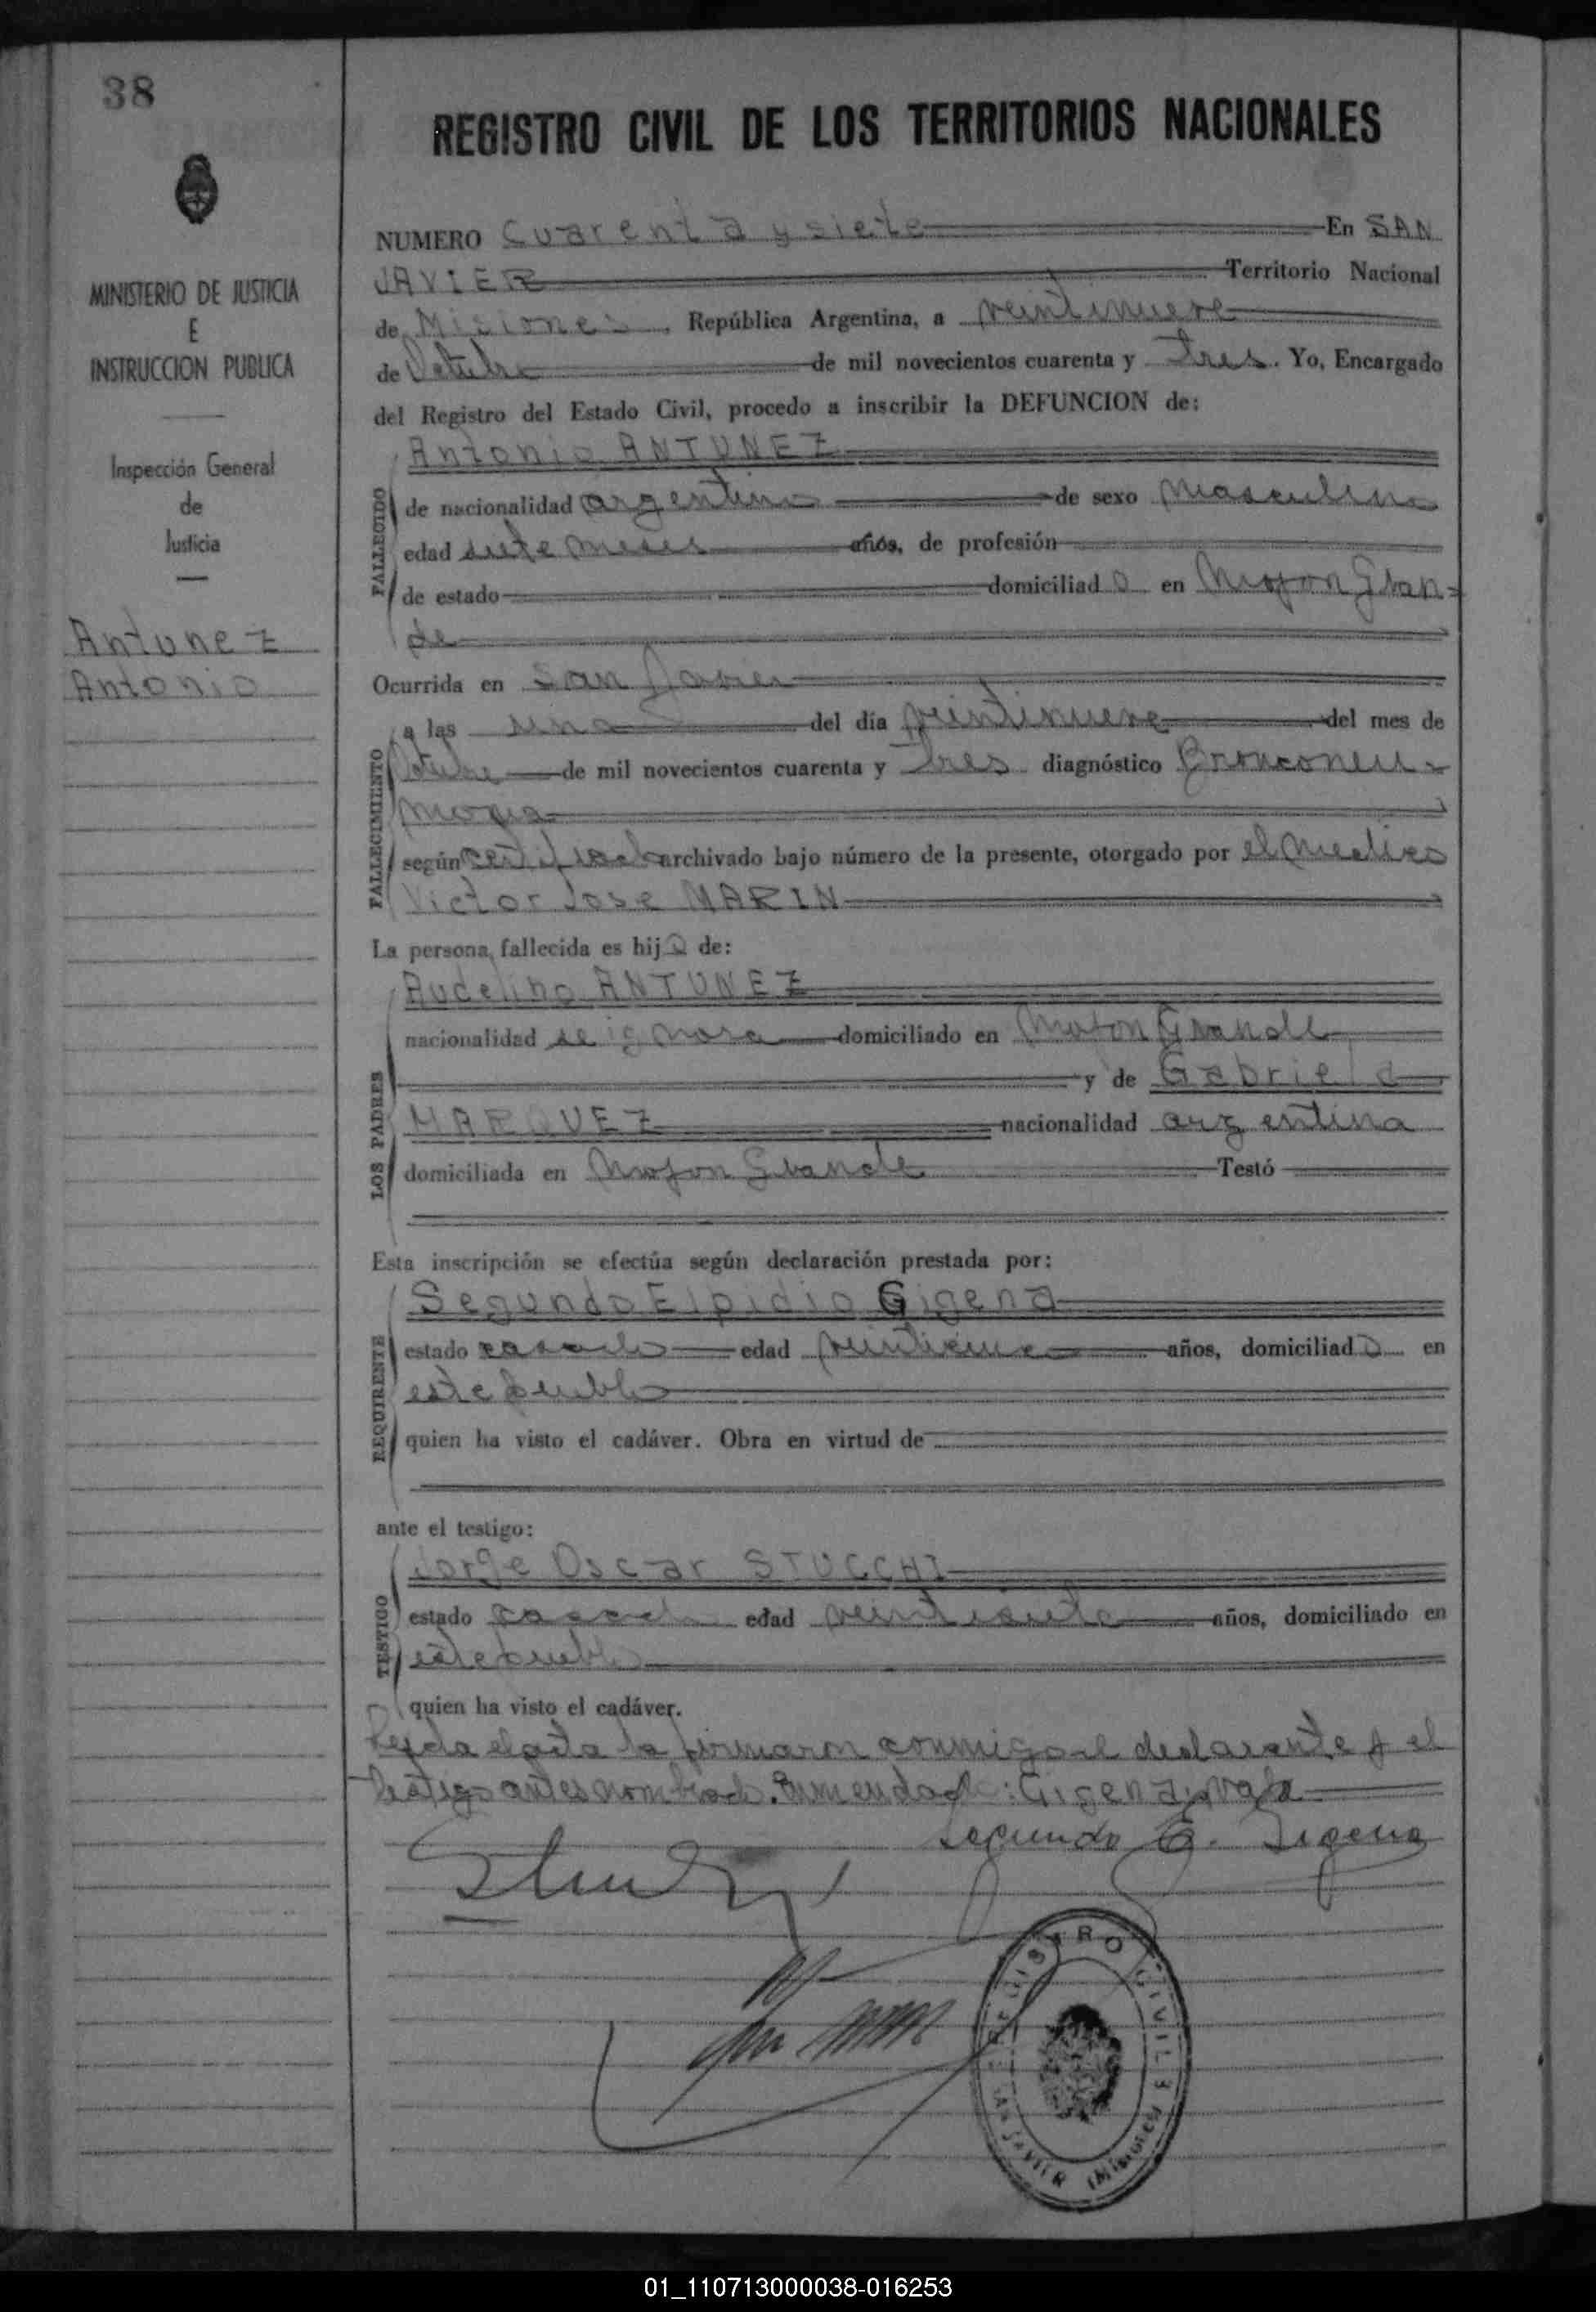 38
MINISTERIO DE JUSTICIA
E
INSTRUCCION PUBLICA
Inspección General
de
Justicia
Antunez
Antonio
REGISTRO CIVIL DE LOS TERRITORIOS NACIONALES
NUMERO Cuarenta y siete En SAN
JAVIER Territorio Nacional
de Misiones, República Argentina, a veintinueve
de Octubre de mil novecientos cuarenta y tres. Yo, Encargado
del Registro del Estado Civil, procedo a inscribir la DEFUNCION de:
Antonio ANTUNEZ
FALLECIDO
de nacionalidad argentino de sexo masculino
edad siete meses años, de profesión
de estado domiciliado en Mojon Gran-
de
Ocurrida en San Javier
FALLECIMIENTO
a las una del día veintinueve del mes de
Octubre de mil novecientos cuarenta y tres diagnóstico Bronconeu-
monia
según certificado archivado bajo número de la presente, otorgado por el medico
Victor Jose MARIN
La persona fallecida es hijo de:
LOS PADRES
Audelino ANTUNEZ
nacionalidad se ignora domiciliado en Mojon Grande
y de Gabriela
MARQUEZ nacionalidad argentina
domiciliada en Mojon Grande Testó
Esta inscripción se efectúa según declaración prestada por:
REQUIRENTE
Segundo Elpidio Gigena
estado casado edad años, domiciliado en
este pueblo
quien ha visto el cadáver. Obra en virtud de
ante el testigo:
TESTIGO
Jorge Oscar STUCCHI
estado casado edad veintisiete años, domiciliado en
este pueblo
quien ha visto el cadáver.
Leida el acta la firmaron conmigo el declarante y el
testigo antes nombrado. Enmendado: Gigena: vale
Segundo E. Gigena
REGISTRO CIVIL
SAN JAVIER (MISIONES)
01_110713000038-016253